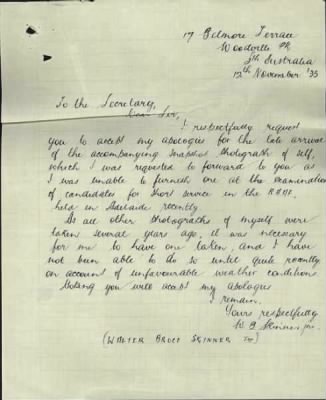 17 Gilmore Terrace
Woodville Pk
Sth Australia
12th November '35
To the Secretary,
Dear Sir,
I respectfully request
you to accept my apologies for the late arrival
of the accompanying snapshot photograph of self,
which I was requested to forward to you as
I was unable to furnish one at the examination
of candidates for short service in the R.A.A.F.
held in Adelaide recently.
As all other photographs of myself were
taken several years ago, it was necessary
for me to have one taken, and I have
not been able to do so until quite recently
on account of unfavourable weather conditions.
Hoping you will accept my apologies
I remain.
Yours respectfully
W. B. Skinner jnr.
(WALTER BRUCE SKINNER Jnr)